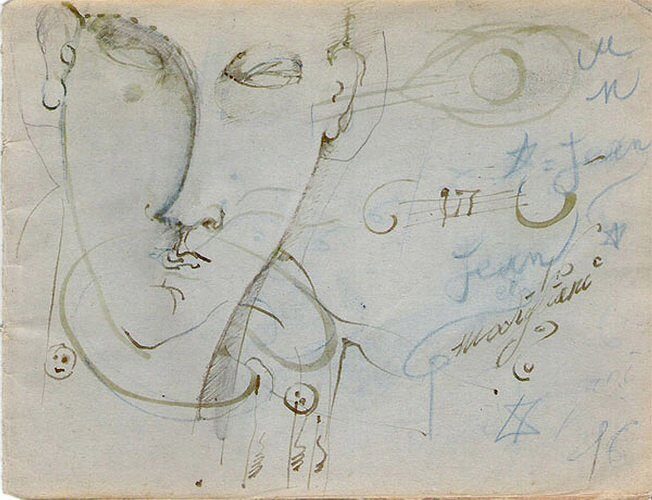 M
N
= Jean
Jean
modigliani
16